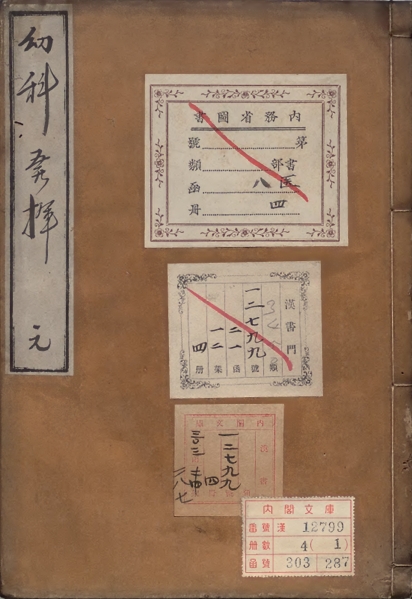 幼科發揮 元
内務省圖書
第 號
書部 類
医 八 函
四 冊
漢書門
類
一二七九九 號
二一 函
一二 架
四 册
一二七九九
四
三〇三
二八七
内閣文庫
番號 漢 12799
册數 4(1)
函號 303 287